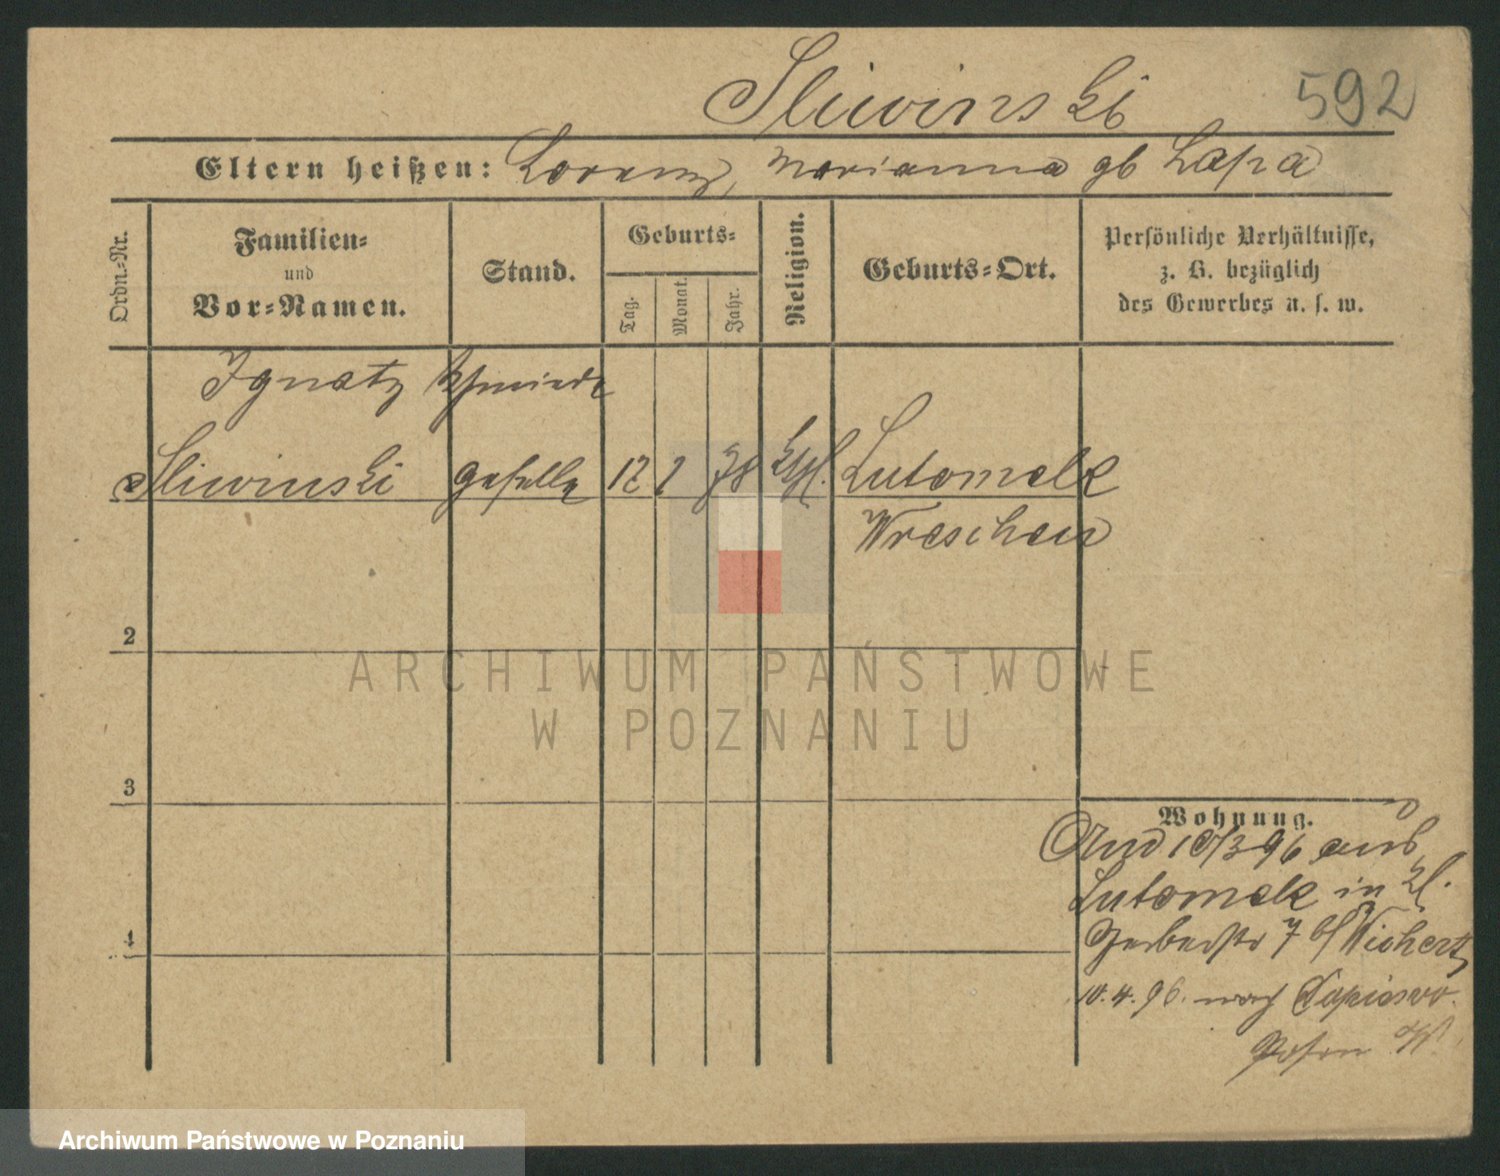 Sliwinski 592
Eltern heißen: Lorenz, Marianna gb Lapa
Ordn.-Nr.
Familien-
und
Vor-Namen.
Stand.
Geburts-
Tag.
Monat.
Jahr.
Religion.
Geburts-Ort.
Persönliche Verhältnisse,
z. B. bezüglich
des Gewerbes u. s. w.
Ignatz Schmiede
Sliwinski geselle 12 78 Kthl. Lutomek
Wreschen
2
3
4
Wohnung.
10/3 96 aus
Lutomek in Kl.
Gerberstr 7 b/Wichert
10.4.96. nach
Posen W.
ARCHIWUM PAŃSTWOWE
W POZNANIU
Archiwum Państwowe w Poznaniu